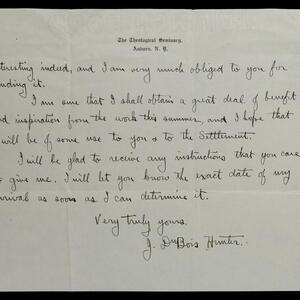 The Theological Seminary,
Auburn, N. Y.
teresting indeed, and I am very much obliged to you for
nding it.
I am sure that I shall obtain a great deal of benefit
nd inspiration from the work this summer, and I hope that
will be of some use to you & to the Settlement.
I will be glad to receive any instructions that you care
o give me. I will let you know the exact date of my
rrival as soon as I can determine it.
Very truly yours,
J. DuBois Hunter.